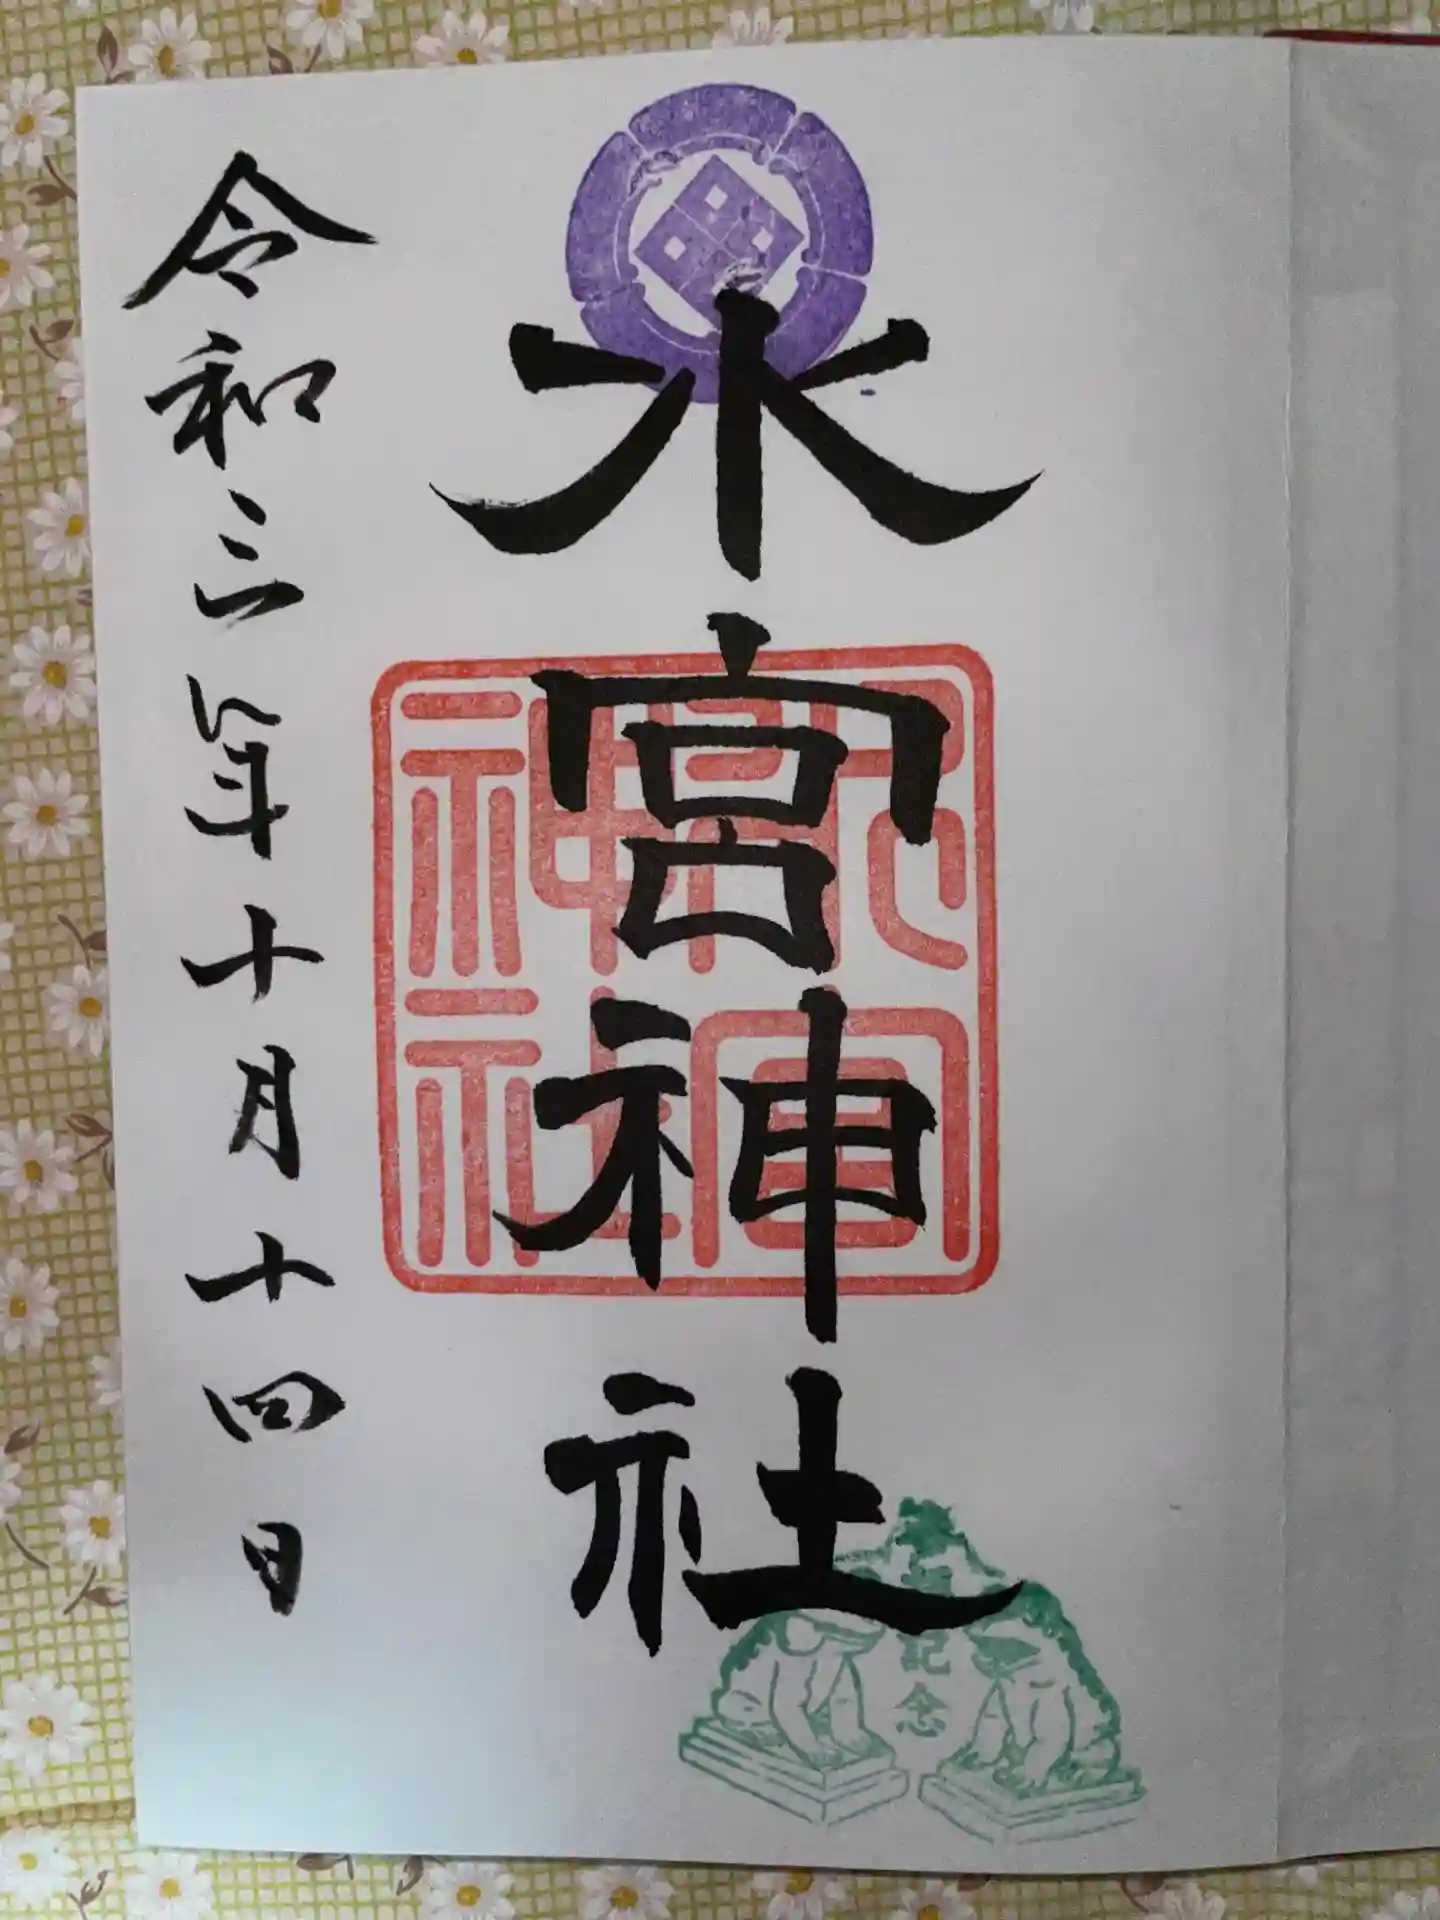 水宮神社
令和三年十月十四日
水宮神社
記念